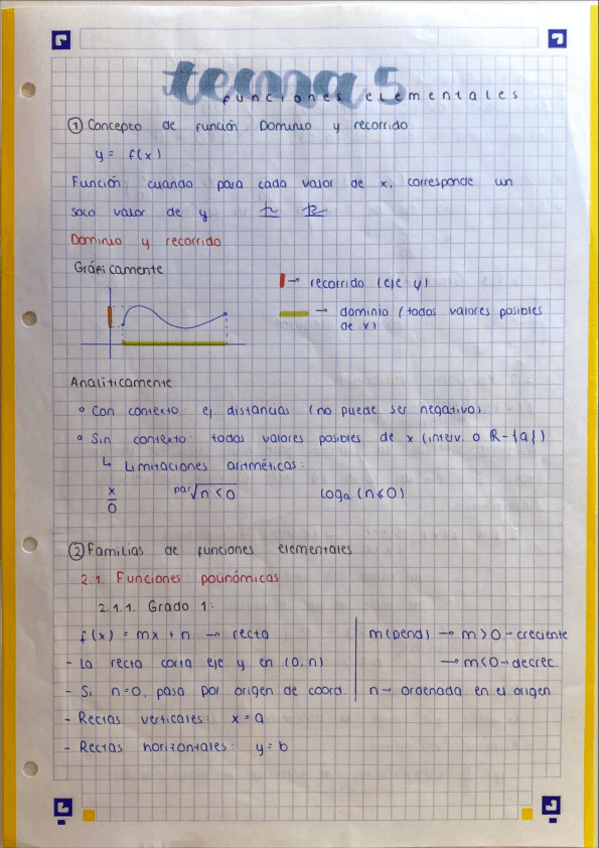 tema 5
funciones elementales
① Concepto de función. Dominio y recorrido
y = f(x)
Función: cuando para cada valor de x, corresponde un
solo valor de y
Dominio y recorrido
Gráficamente
→ recorrido (eje y)
→ dominio (todos valores posibles
de x)
Analíticamente
° Con contexto: ej distancias (no puede ser negativo).
° Sin contexto: todos valores posibles de x (interv. o R-{a})
↳ Limitaciones aritméticas:
x/0 par√n<0 loga (n≤0)
② Familias de funciones elementales
2.1. Funciones polinómicas
2.1.1. Grado 1:
f(x) = mx + n → recta
- La recta corta eje y en (0,n)
- Si n=0, pasa por origen de coord.
- Rectas verticales: x = a
- Rectas horizontales: y = b
m(pend) → m>0 - creciente
→ m<0 → decrec.
n → ordenada en el origen